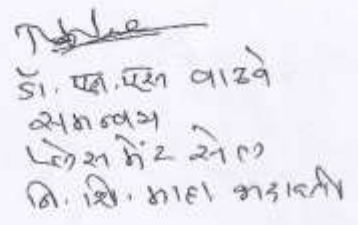 डॉ. एल. एस वाढवे
समन्वय
प्लेसमेंट सेल
नि. शि. महा भद्रावती